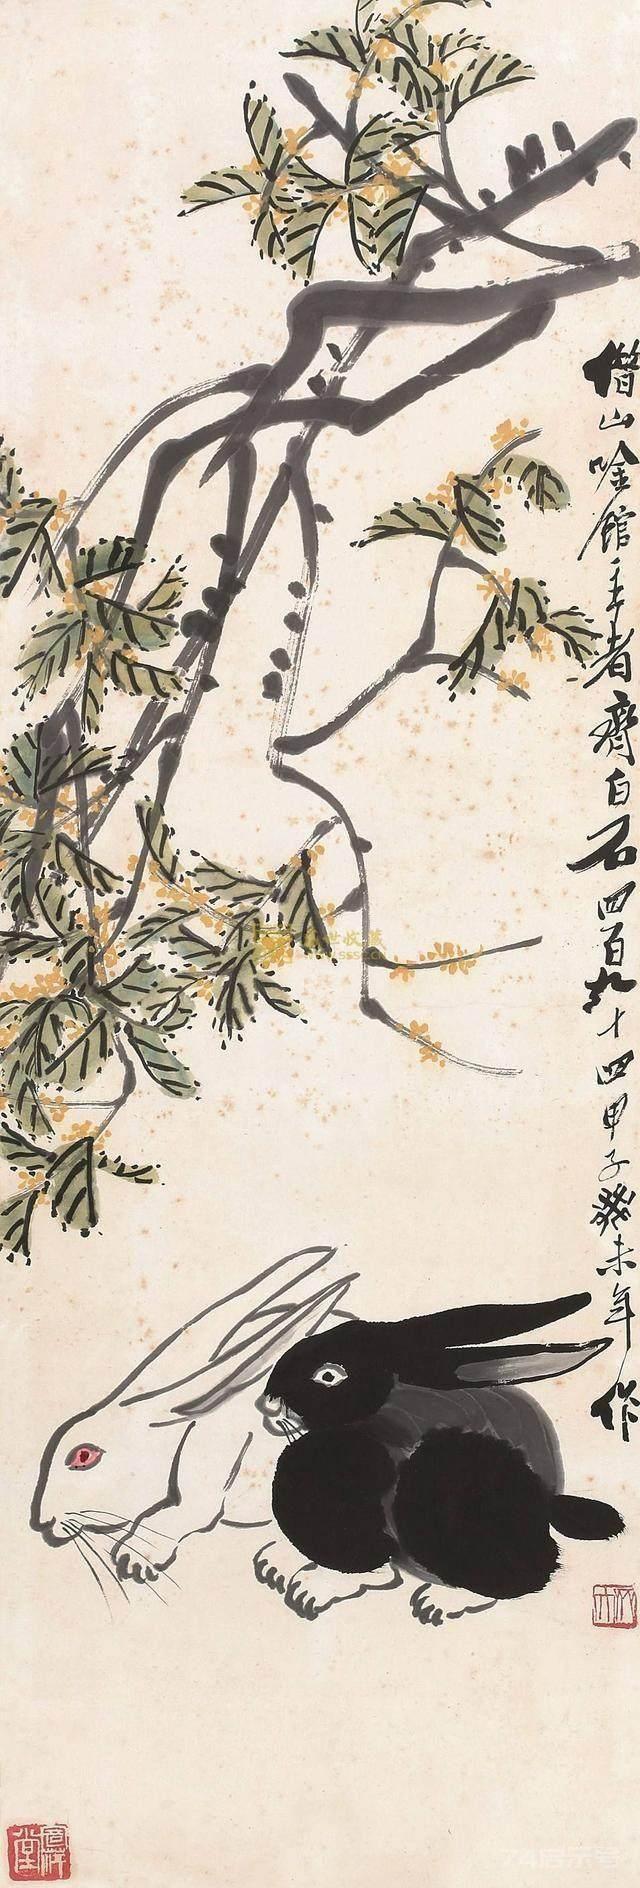 借山唫館主者齊白石四百九十四甲子癸未年作
世收藏